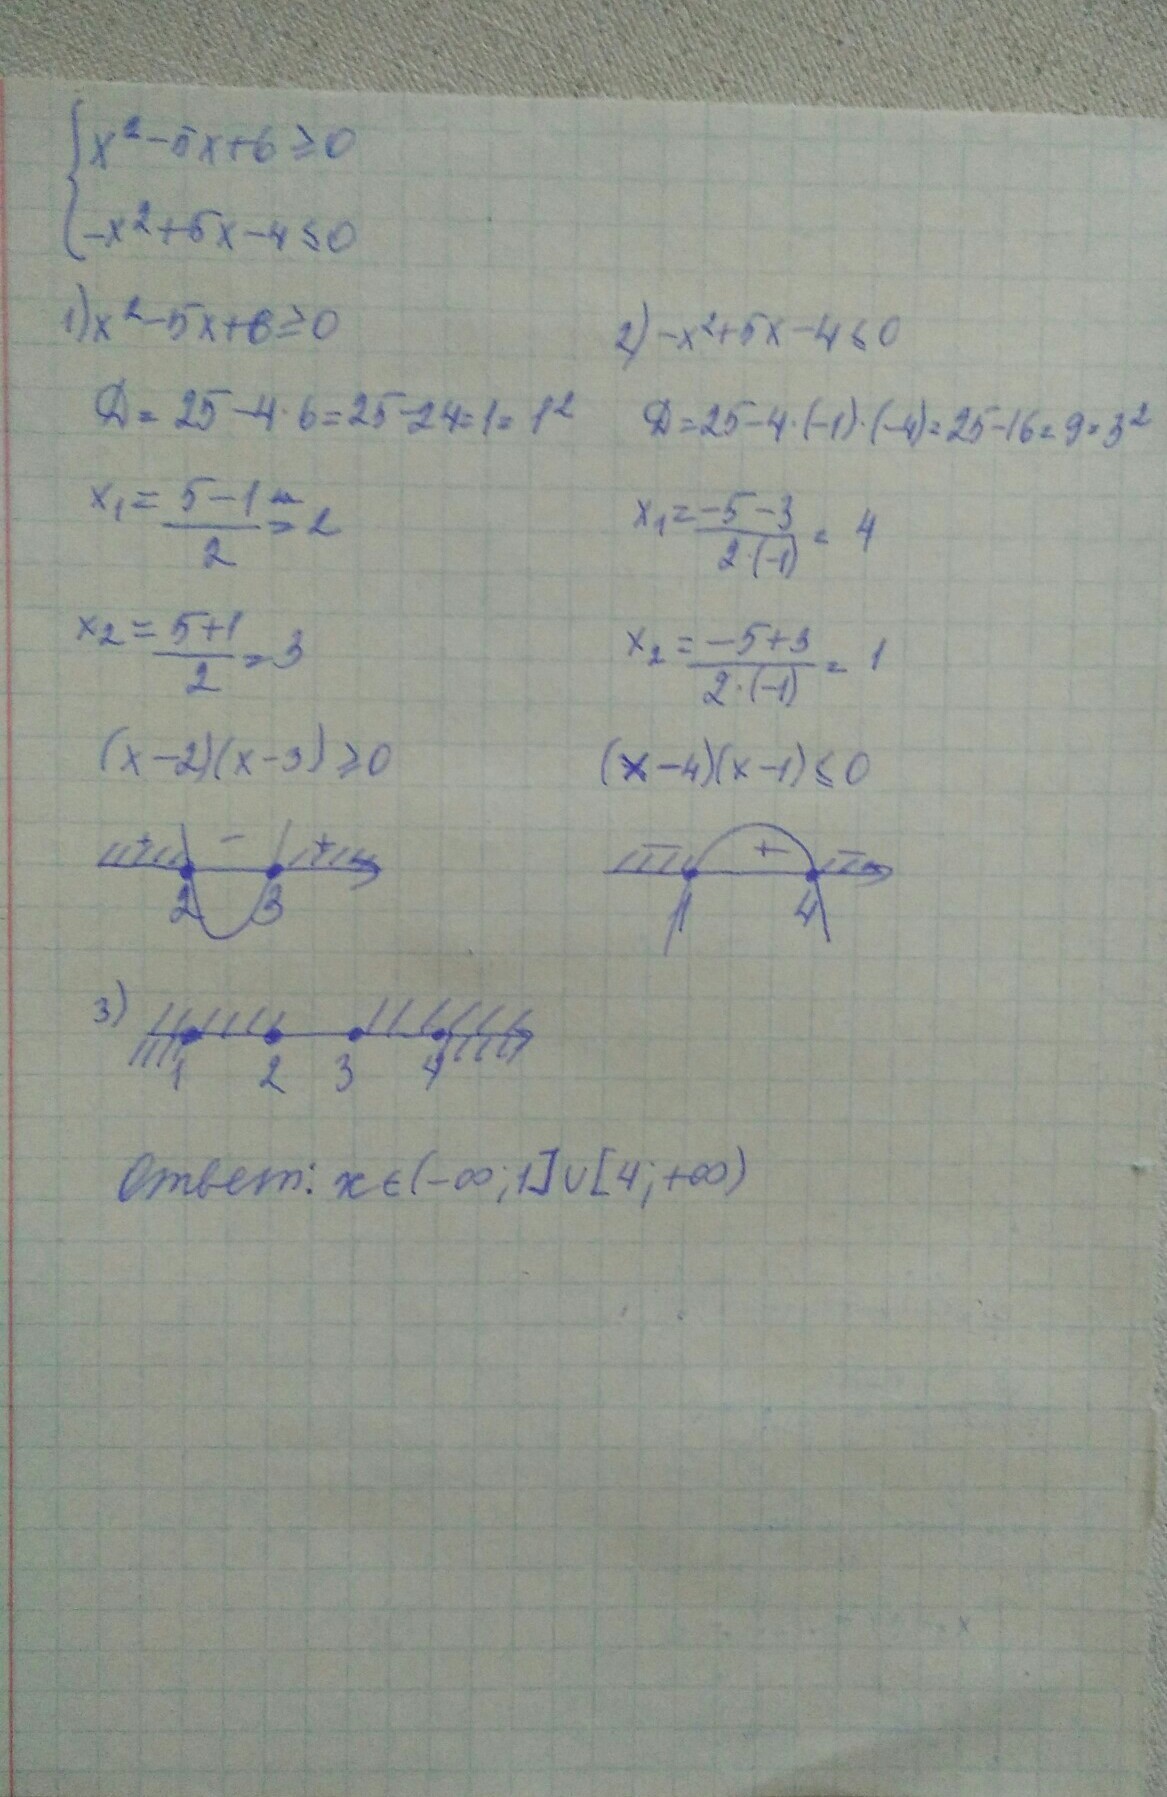 {x²-5x+6≥0
-x²+5x-4≤0
1) x²-5x+6≥0
D = 25-4·6=25-24=1=1²
x₁ = (5-1)/2 = 2
x₂ = (5+1)/2 = 3
(x-2)(x-3)≥0
+ - +
2 3
2) -x²+5x-4≤0
D=25-4·(-1)·(-4)=25-16=9=3²
x₁ = (-5-3)/(2·(-1)) = 4
x₂ = (-5+3)/(2·(-1)) = 1
(x-4)(x-1)≤0
- + -
1 4
3)
1 2 3 4
Ответ: x∈(-∞;1]∪[4;+∞)